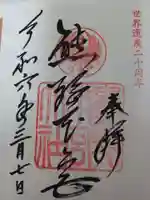 世界遺産二十周年
奉拝
熊野本宮
令和六年三月七日